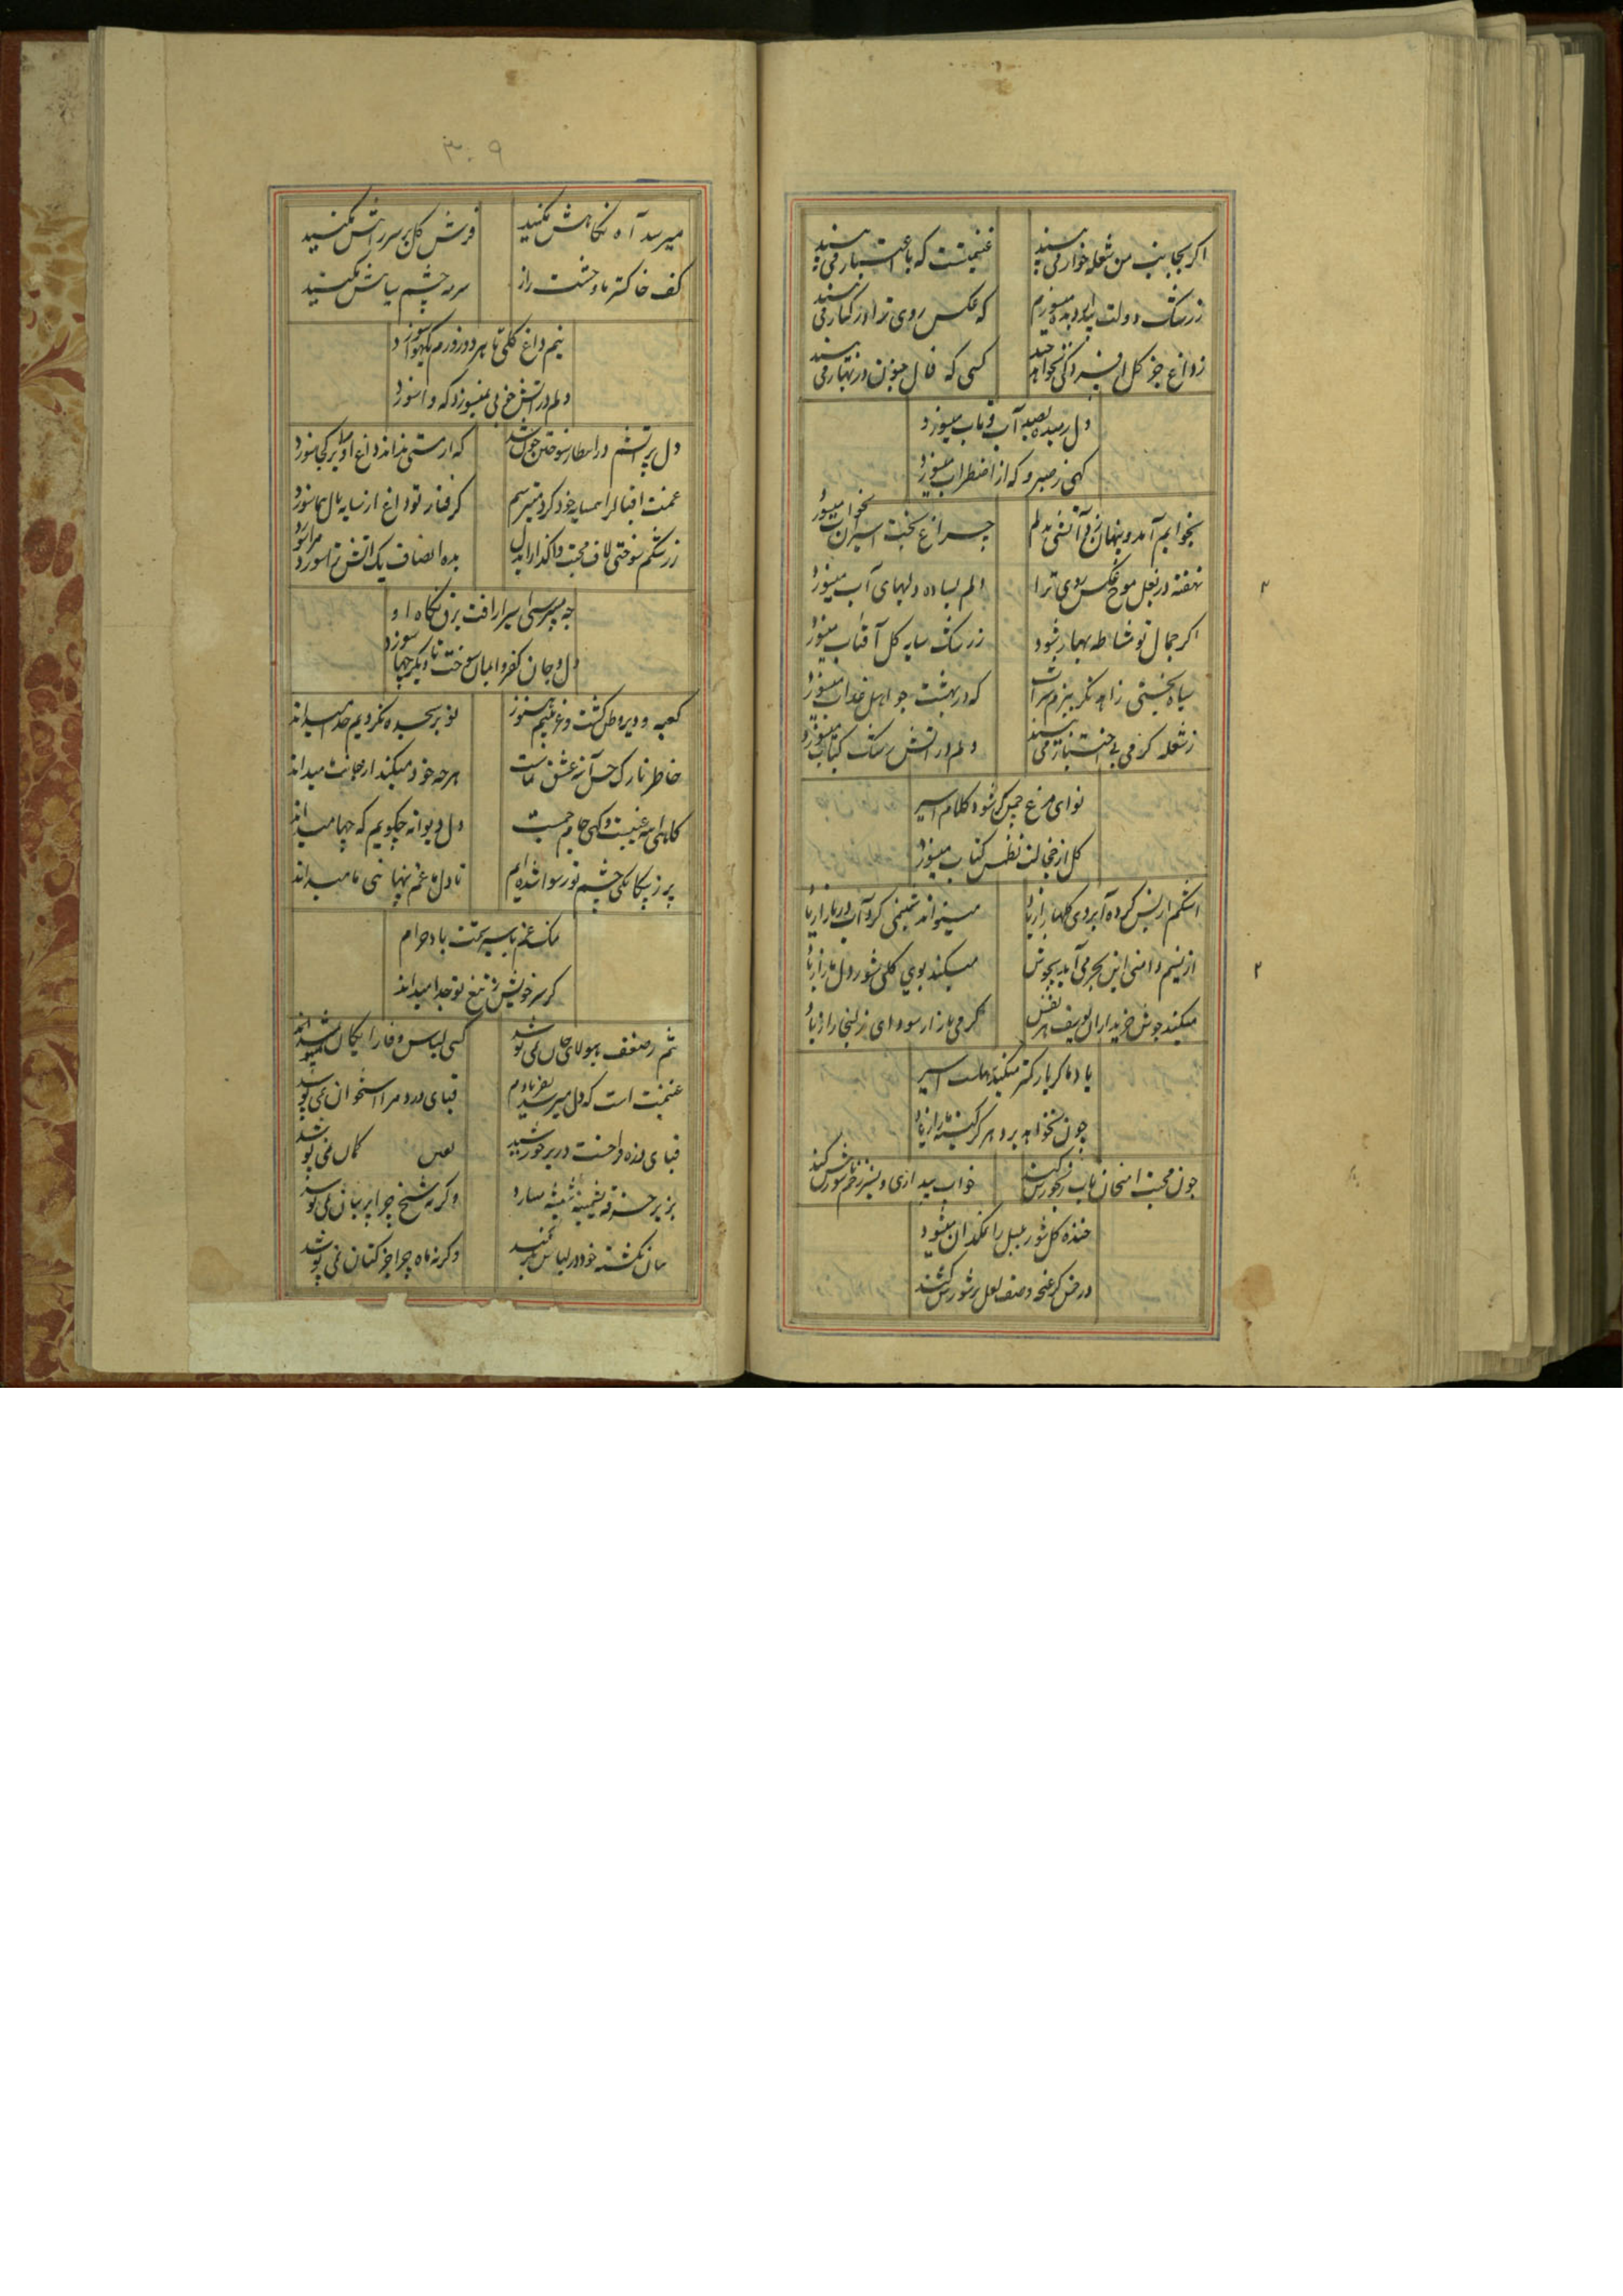 اگر بجانب من شعله خوار می بیند
غنیمتست که با اعتبار می بیند
ز رشک دولت بیدار دیده میسوزم
که عکس روی ترا در کنار می بیند
ز داغ جز گل افسردگی نخواهد چید
کسی که فال جنون در بهار می بیند
دل رمیده بصد آب و تاب میسوزد
گهی ز صبر و گه از اضطراب میسوزد
بخوابم آمد و پنهان زد آتشی بدلم
چراغ بخت اسیران بخواب میسوزد
نهفته در بغل موج عکس روی ترا
دلم بساده دلیهای آب میسوزد
اگر جمال تو مشاطه بهار شود
ز رشک سایه گل آفتاب میسوزد
سیاه بختی زاهد نگر ببزم شراب
که در بهشت چو اهل عذاب میسوزد
ز شعله گرمی بی اختیار می بیند
دلم در آتش رشک کباب میسوزد
نوای مرغ چمن گر شود کلام اسیر
گل از خجالت نظم کتاب میسوزد
اشکم از بس کرده آبروی گلها را زیاد
میتواند شبنمی کرد آب دریا را زیاد
از نسیم دامنی این بحر می آید بجوش
میکند بوی گلی شور دل ما را زیاد
میکند جوش خریداران یوسف هر نفس
گرمی بازار سودای زلیخا را زیاد
یاد ما گر یار کمتر میکند سهلست اسیر
چون نخواهد برد هرگز کینه ما را ز یاد
چون محبت امتحان تاب رنجورش کند
خواب بیداری و بستر زخم ناسورش کند
خنده گل شور بلبل را نمکدان میشود
در چمن گر غنچه وصف لعل پرشورش کند
۳۰۹
میرسد آه نگاهش مکنید
فرش گل بر سر راهش مکنید
کف خاکستر ما وحشت راز
سرمه چشم سیاهش مکنید
نیم داغ گلی تا هر دو روزم یکهوا سوزد
دلم در آتش خوبی نمیسوزد که وا سوزد
دل پر آتشم در انتظار سوختن خون شد
که از مستی نداند داغ او را بر کجا سوزد
غمت اقبال را همسایه خود کرد میترسم
گرفتار تو داغ از سایه بال هما سوزد
ز رشکم سوختی لاف محبت واگذار ای دل
بده انصاف یک آتش ترا سوزد مرا سوزد
چه میپرسی اسیر از آفت برق نگاه او
دل و جان کفر و ایمان سوخت تا دیگر چها سوزد
کعبه و دیر وطن گشت و غریبیم هنوز
تو بهر سجده نکردیم خدا میداند
خاطر نازک حسن آینه عشق نماست
هر چه خود میکند از جانب ما میداند
گاهی آیینه غیبست و گهی جام جمست
دل دیوانه چگویم که چها میداند
پر ز بیگانگی چشم تو رسوا شده ایم
تا دل ما غم پنهانی ما میداند
نمک غم باسیر تو حرام
گر سر خویش ز تیغ تو جدا میداند
تنم ز ضعف هیولای جان نمی پوشد
کسی لباس وفا رایگان نمیپوشد
غنیمت است که دل میرسد بفریادم
قبای درد مرا استخوان نمی پوشد
قبای ذره فراخست در بر خورشید
کمان نمی پوشد
بزیر خرقه پشمینه شیشه ساده
وگرنه شیخ چرا پرنیان نمی پوشد
وگرنه ماه چرا جز کتان نمی پوشد